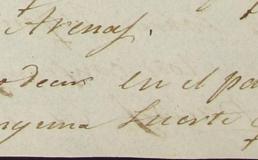 Arenas.
decir en el po
nguna Suerte